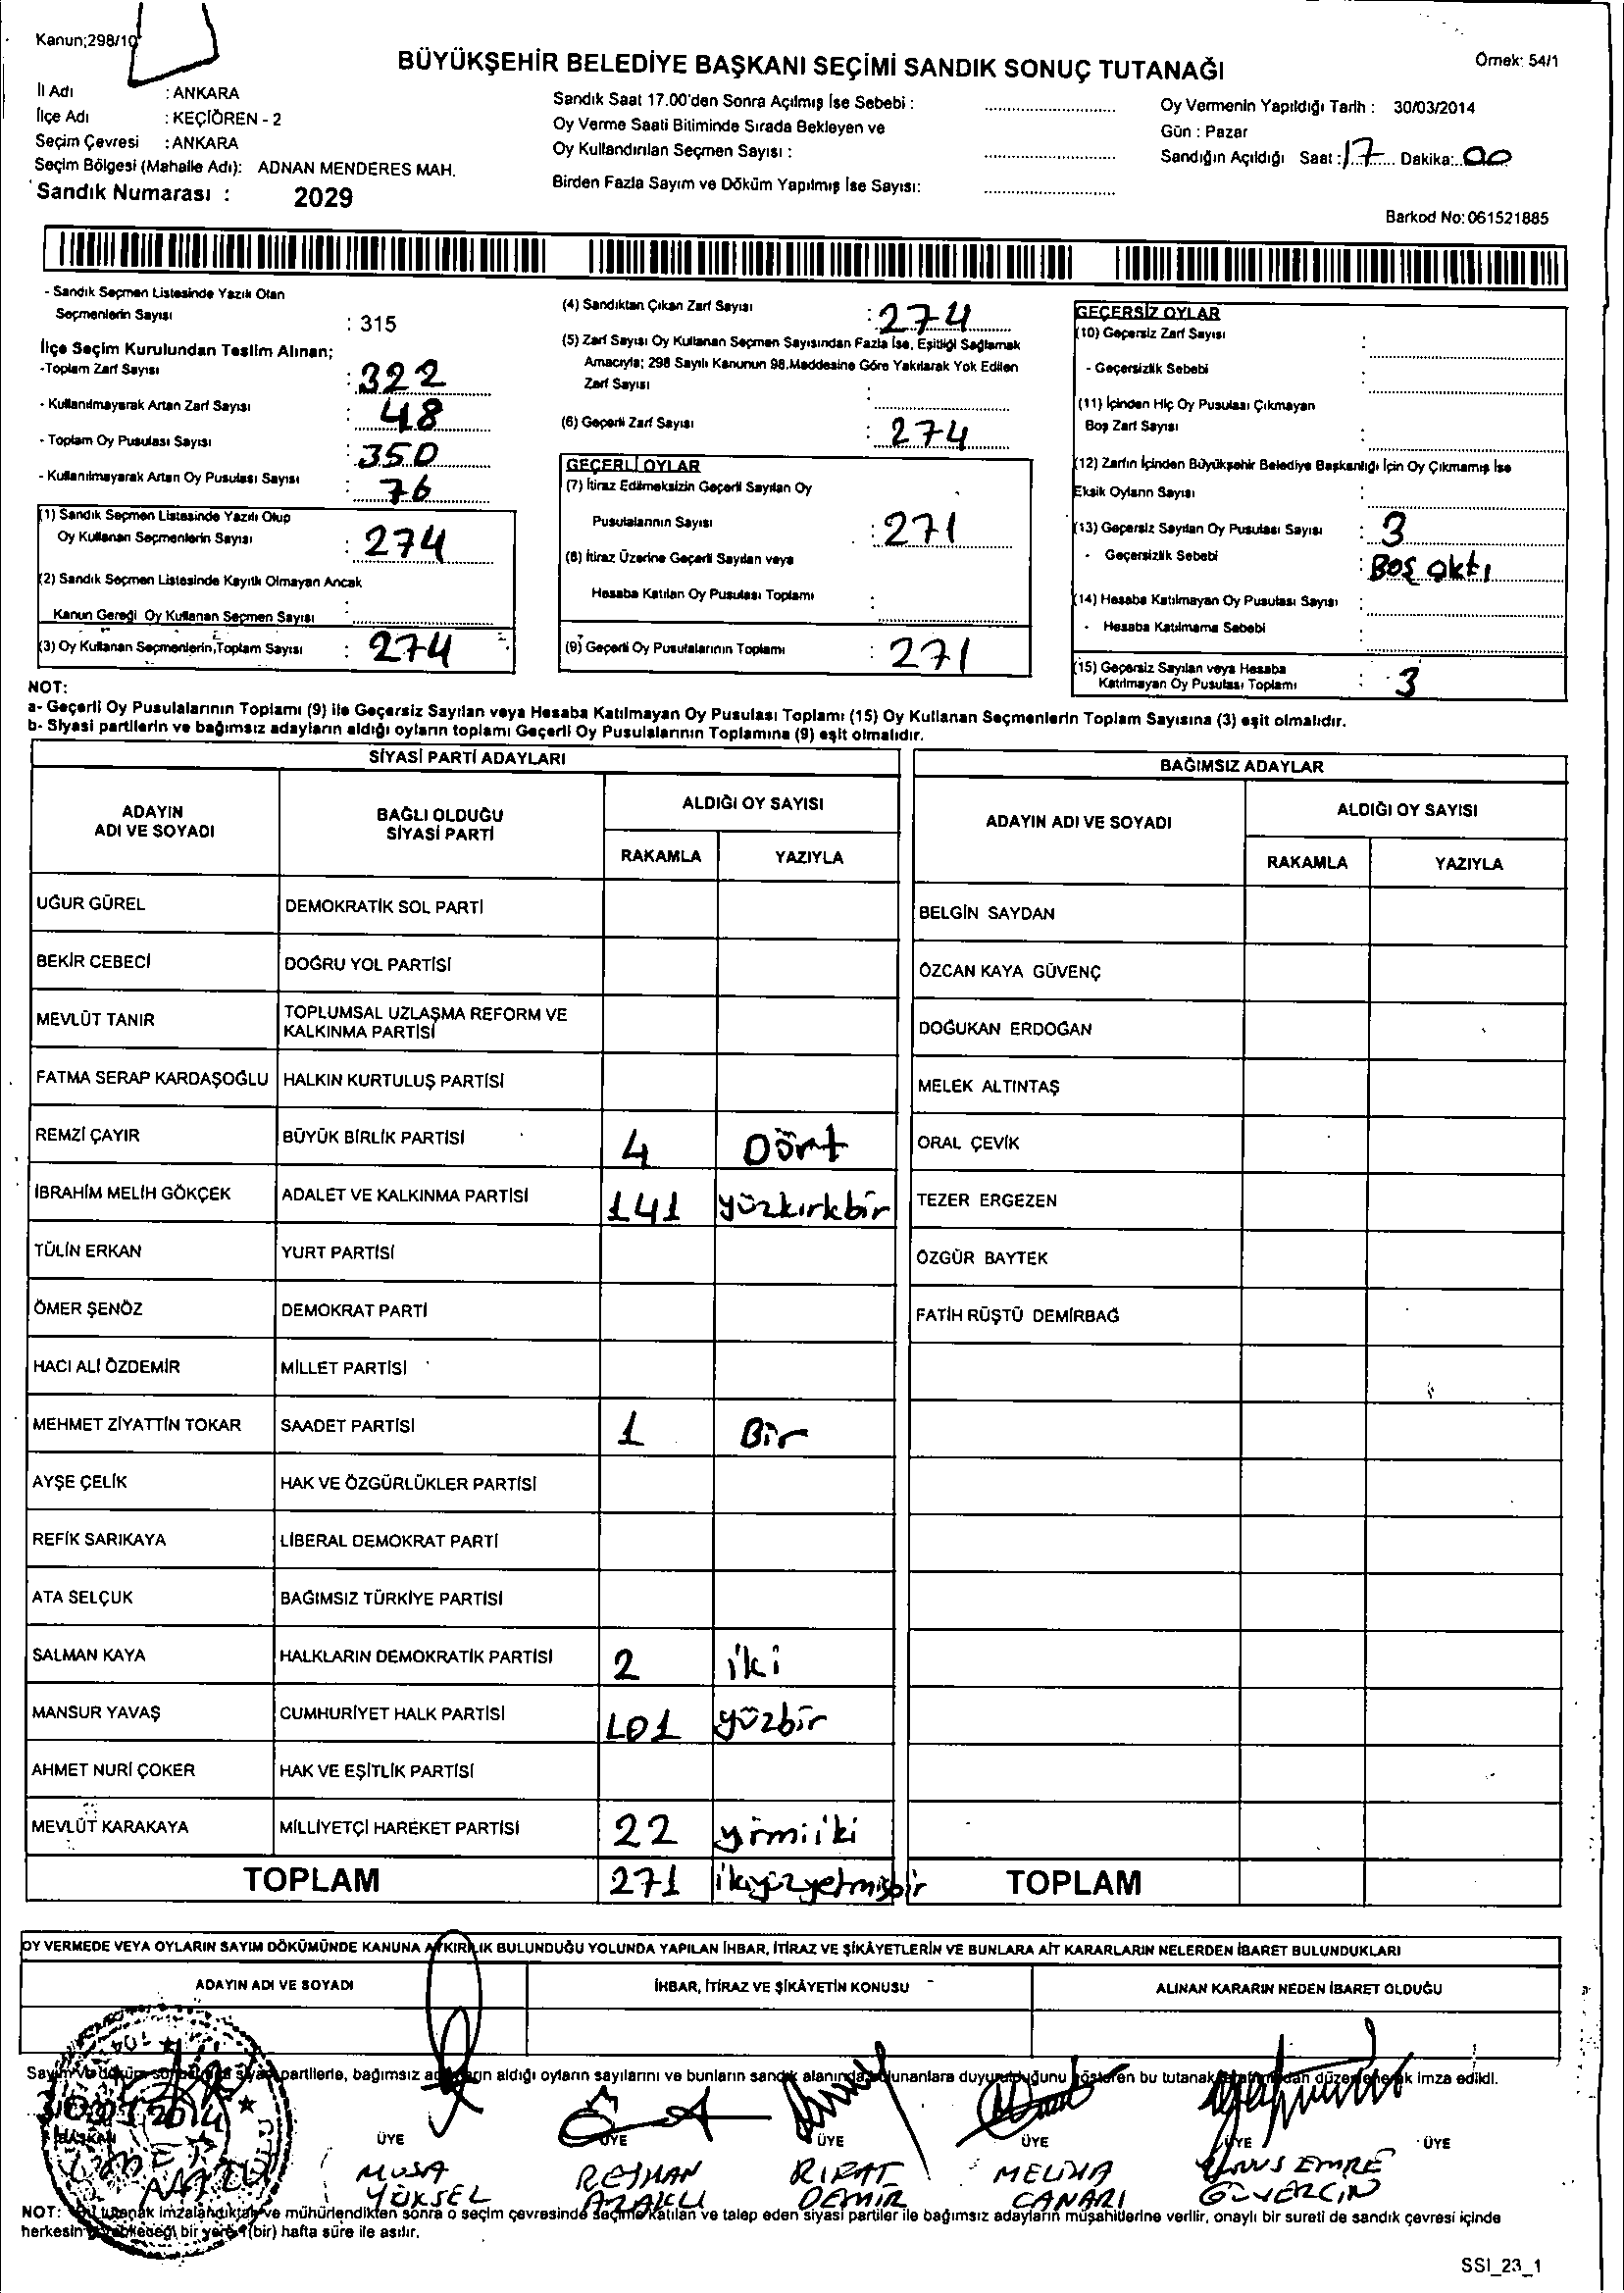 Kanun;298/10
BÜYÜKŞEHİR BELEDİYE BAŞKANI SEÇİMİ SANDIK SONUÇ TUTANAĞI
Örnek: 54/1
İl Adı : ANKARA
İlçe Adı : KEÇİÖREN - 2
Seçim Çevresi : ANKARA
Seçim Bölgesi (Mahalle Adı): ADNAN MENDERES MAH.
Sandık Numarası : 2029
Sandık Saat 17.00'den Sonra Açılmış İse Sebebi :
Oy Verme Saati Bitiminde Sırada Bekleyen ve
Oy Kullandırılan Seçmen Sayısı :
Birden Fazla Sayım ve Döküm Yapılmış İse Sayısı:
Oy Vermenin Yapıldığı Tarih : 30/03/2014
Gün : Pazar
Sandığın Açıldığı Saat : 17 Dakika: 00
Barkod No: 061521885
- Sandık Seçmen Listesinde Yazılı Olan
Seçmenlerin Sayısı : 315
İlçe Seçim Kurulundan Teslim Alınan;
-Toplam Zarf Sayısı : 322
- Kullanılmayarak Artan Zarf Sayısı : 48
- Toplam Oy Pusulası Sayısı : 350
- Kullanılmayarak Artan Oy Pusulası Sayısı : 76
(1) Sandık Seçmen Listesinde Yazılı Olup
Oy Kullanan Seçmenlerin Sayısı : 274
(2) Sandık Seçmen Listesinde Kayıtlı Olmayan Ancak
Kanun Gereği Oy Kullanan Seçmen Sayısı :
(3) Oy Kullanan Seçmenlerin Toplam Sayısı : 274
(4) Sandıktan Çıkan Zarf Sayısı : 274
(5) Zarf Sayısı Oy Kullanan Seçmen Sayısından Fazla İse, Eşitliği Sağlamak
Amacıyla; 298 Sayılı Kanunun 98.Maddesine Göre Yakılarak Yok Edilen
Zarf Sayısı :
(6) Geçerli Zarf Sayısı : 274
GEÇERLİ OYLAR
(7) İtiraz Edilmeksizin Geçerli Sayılan Oy
Pusulalarının Sayısı : 271
(8) İtiraz Üzerine Geçerli Sayılan veya
Hesaba Katılan Oy Pusulası Toplamı :
(9) Geçerli Oy Pusulalarının Toplamı : 271
GEÇERSİZ OYLAR
(10) Geçersiz Zarf Sayısı :
- Geçersizlik Sebebi :
(11) İçinden Hiç Oy Pusulası Çıkmayan
Boş Zarf Sayısı :
(12) Zarfın İçinden Büyükşehir Belediye Başkanlığı İçin Oy Çıkmamış İse
Eksik Oyların Sayısı :
(13) Geçersiz Sayılan Oy Pusulası Sayısı : 3
- Geçersizlik Sebebi : Boş çıktı
(14) Hesaba Katılmayan Oy Pusulası Sayısı :
- Hesaba Katılmama Sebebi :
(15) Geçersiz Sayılan veya Hesaba
Katılmayan Oy Pusulası Toplamı : 3
NOT:
a- Geçerli Oy Pusulalarının Toplamı (9) ile Geçersiz Sayılan veya Hesaba Katılmayan Oy Pusulası Toplamı (15) Oy Kullanan Seçmenlerin Toplam Sayısına (3) eşit olmalıdır.
b- Siyasi partilerin ve bağımsız adayların aldığı oyların toplamı Geçerli Oy Pusulalarının Toplamına (9) eşit olmalıdır.
SİYASİ PARTİ ADAYLARI
ADAYIN ADI VE SOYADI BAĞLI OLDUĞU SİYASİ PARTİ ALDIĞI OY SAYISI
RAKAMLA YAZIYLA
UĞUR GÜREL DEMOKRATİK SOL PARTİ
BEKİR CEBECİ DOĞRU YOL PARTİSİ
MEVLÜT TANIR TOPLUMSAL UZLAŞMA REFORM VE KALKINMA PARTİSİ
FATMA SERAP KARDAŞOĞLU HALKIN KURTULUŞ PARTİSİ
REMZİ ÇAYIR BÜYÜK BİRLİK PARTİSİ 4 Dört
İBRAHİM MELİH GÖKÇEK ADALET VE KALKINMA PARTİSİ 141 yüzkırkbir
TÜLİN ERKAN YURT PARTİSİ
ÖMER ŞENÖZ DEMOKRAT PARTİ
HACI ALİ ÖZDEMİR MİLLET PARTİSİ
MEHMET ZİYATTİN TOKAR SAADET PARTİSİ 1 Bir
AYŞE ÇELİK HAK VE ÖZGÜRLÜKLER PARTİSİ
REFİK SARIKAYA LİBERAL DEMOKRAT PARTİ
ATA SELÇUK BAĞIMSIZ TÜRKİYE PARTİSİ
SALMAN KAYA HALKLARIN DEMOKRATİK PARTİSİ 2 iki
MANSUR YAVAŞ CUMHURİYET HALK PARTİSİ 101 yüzbir
AHMET NURİ ÇOKER HAK VE EŞİTLİK PARTİSİ
MEVLÜT KARAKAYA MİLLİYETÇİ HAREKET PARTİSİ 22 yirmiiki
TOPLAM 271 ikiyüzyetmişbir
BAĞIMSIZ ADAYLAR
ADAYIN ADI VE SOYADI ALDIĞI OY SAYISI
RAKAMLA YAZIYLA
BELGİN SAYDAN
ÖZCAN KAYA GÜVENÇ
DOĞUKAN ERDOĞAN
MELEK ALTINTAŞ
ORAL ÇEVİK
TEZER ERGEZEN
ÖZGÜR BAYTEK
FATİH RÜŞTÜ DEMİRBAĞ
TOPLAM
OY VERMEDE VEYA OYLARIN SAYIM DÖKÜMÜNDE KANUNA AYKIRILIK BULUNDUĞU YOLUNDA YAPILAN İHBAR, İTİRAZ VE ŞİKÂYETLERİN VE BUNLARA AİT KARARLARIN NELERDEN İBARET BULUNDUKLARI
ADAYIN ADI VE SOYADI İHBAR, İTİRAZ VE ŞİKÂYETİN KONUSU ALINAN KARARIN NEDEN İBARET OLDUĞU
partilerle, bağımsız adayların aldığı oyların sayılarını ve bunların sandık alanında bulunanlara duyurulduğunu gösteren bu tutanak tarafımızdan düzenlenerek imza edildi.
BAŞKAN ÜYE ÜYE ÜYE ÜYE ÜYE ÜYE
MUSA YÜKSEL
REYHAN
RIFAT DEMİR
MELİHA CANARI
YUNUS EMRE GÜVERCİN
NOT: Bu tutanak imzalandıktan ve mühürlendikten sonra o seçim çevresinde seçime katılan ve talep eden siyasi partiler ile bağımsız adayların müşahitlerine verilir, onaylı bir sureti de sandık çevresi içinde
herkesin görebileceği bir yere 1 (bir) hafta süre ile asılır.
SSI_23_1